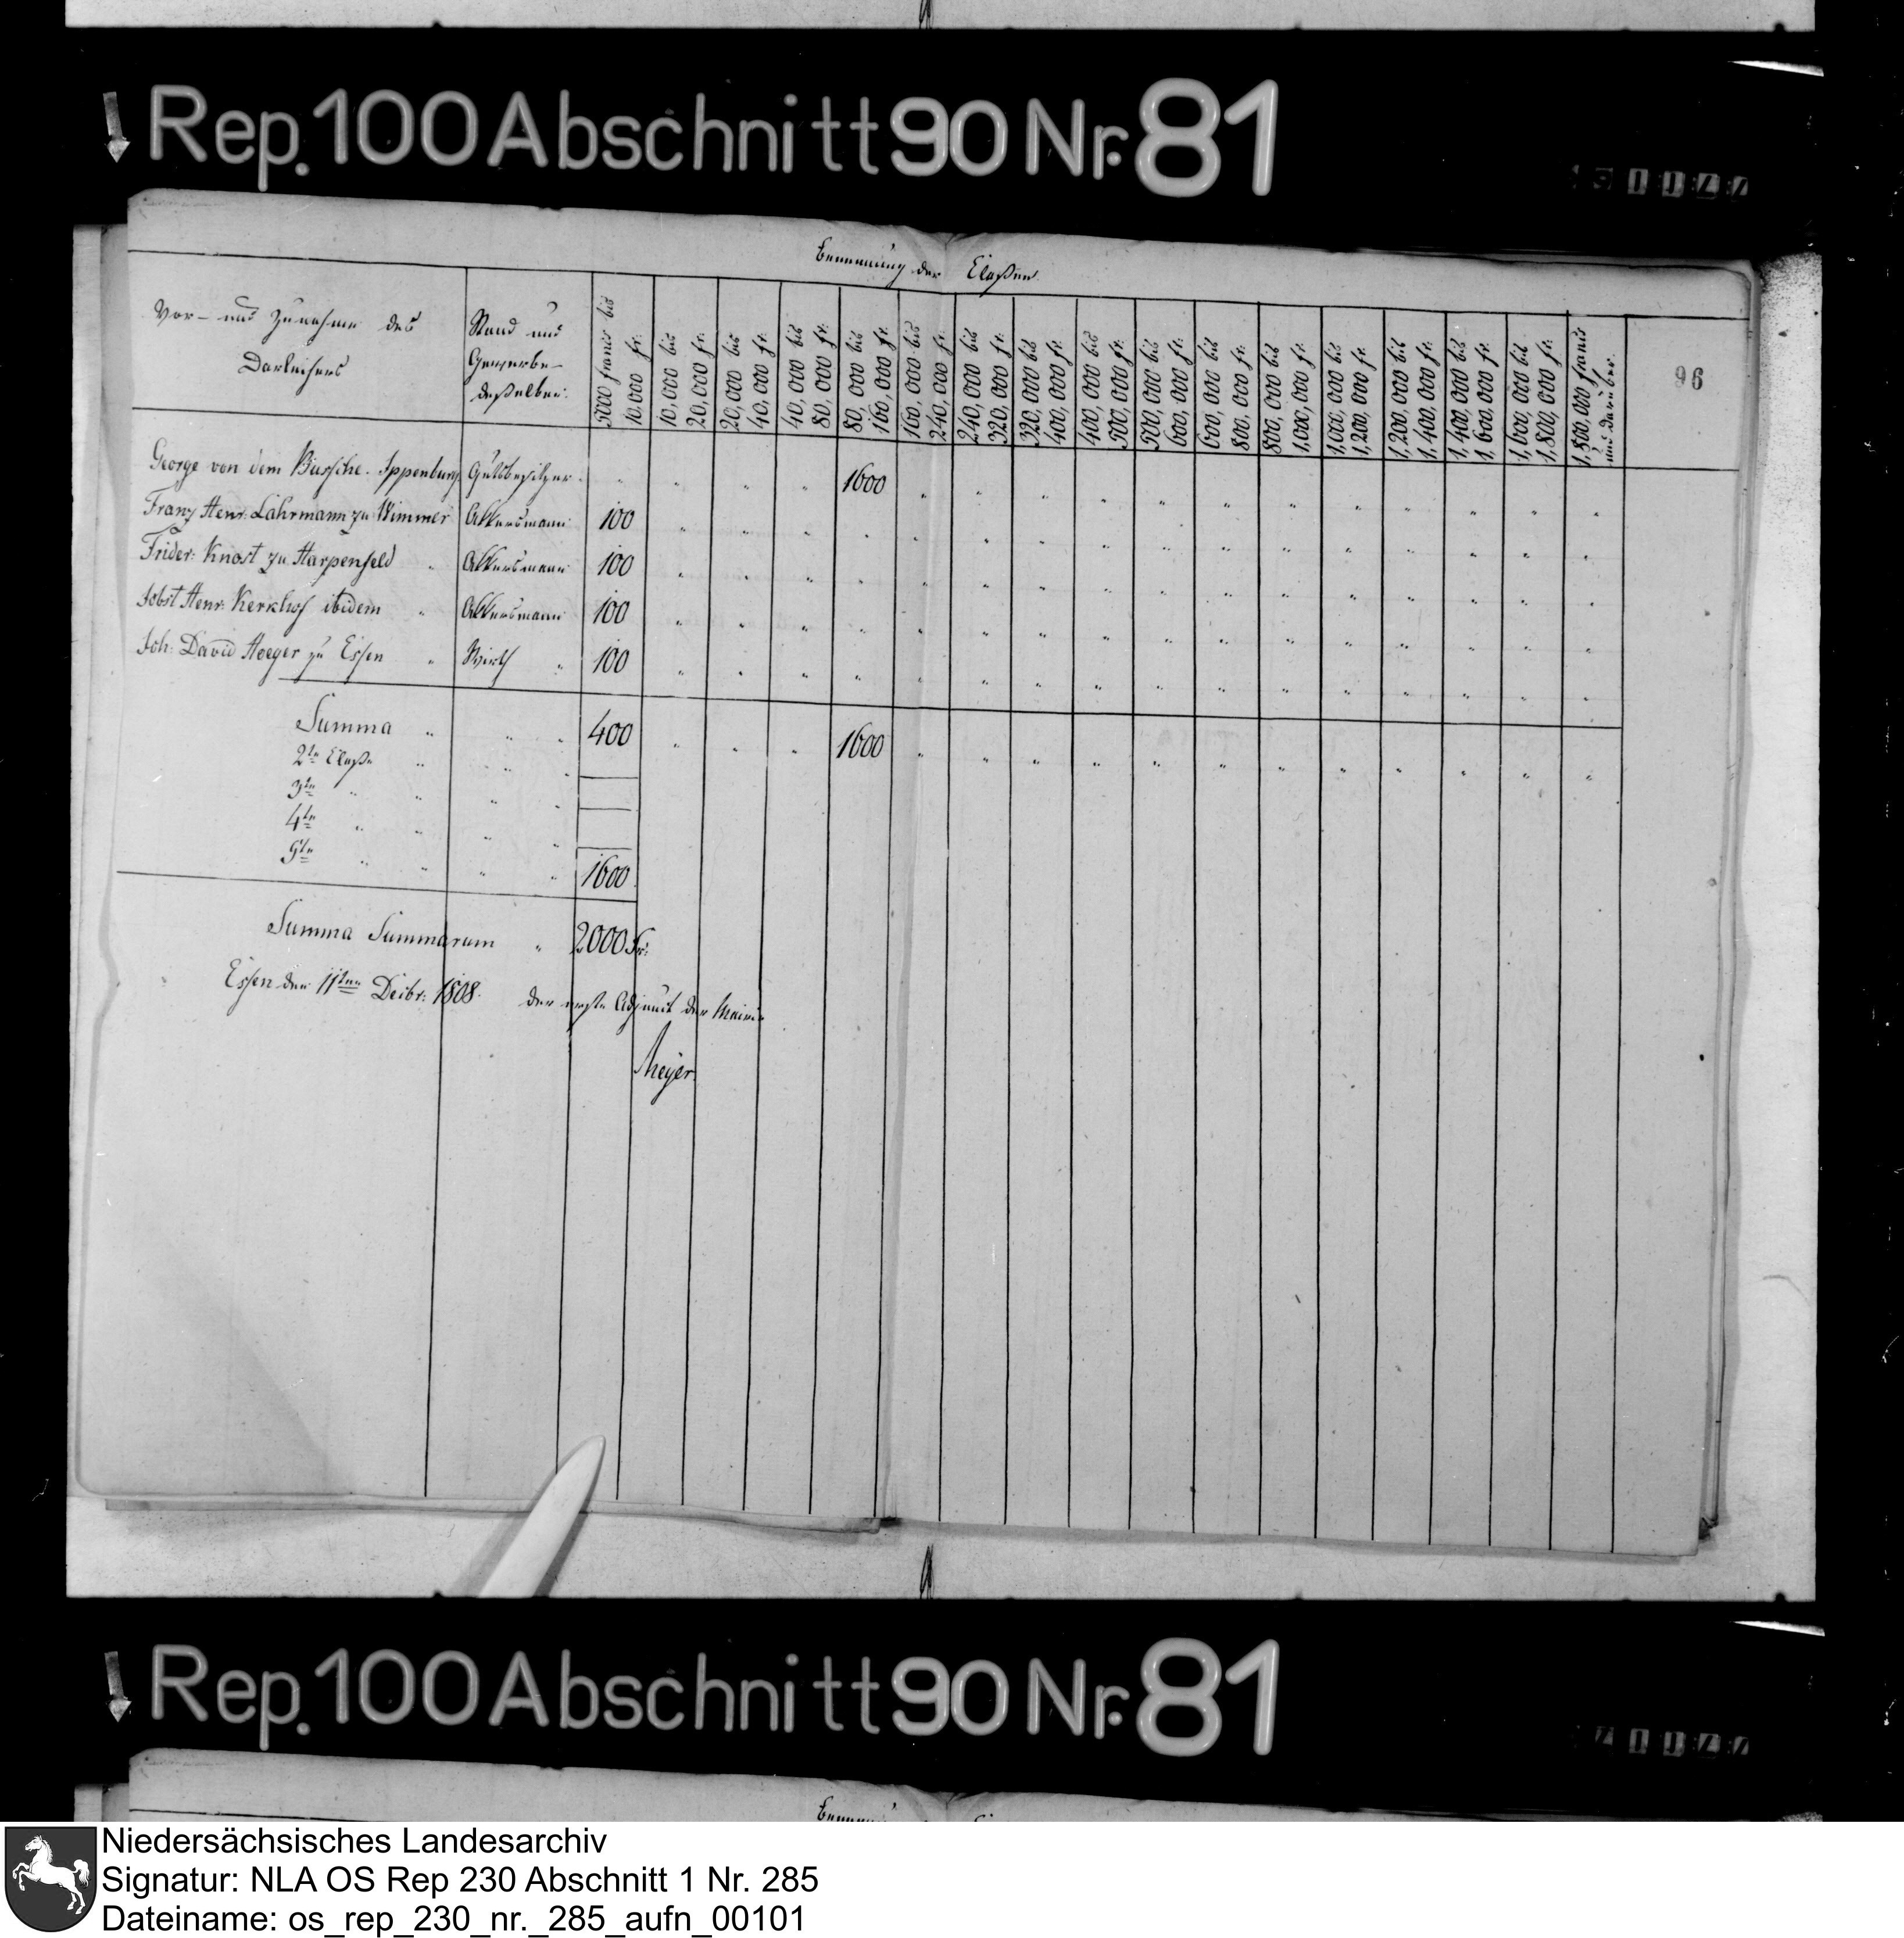 Rep. 100 Abschnitt 90 Nr. 81
Benennung der Claßen
Vor- und Zunahme des Darleihers
Stand und Gewerbe deßelben:
5000 francs bis 10,000 fr.
10,000 bis 20,000 fr.
20,000 bis 40,000 fr.
40,000 bis 80,000 fr.
80,000 bis 160,000 fr.
160,000 bis 240,000 fr.
240,000 bis 320,000 fr.
320,000 bis 400,000 fr.
400,000 bis 500,000 fr.
500,000 bis 600,000 fr.
600,000 bis 800,000 fr.
800,000 bis 1,000,000 fr.
1,000,000 bis 1,200,000 fr.
1,200,000 bis 1,400,000 fr.
1,400,000 bis 1,600,000 fr.
1,600,000 bis 1,800,000 fr.
1,800,000 francs und darüber.
96
George von dem Bussche. Ippenburg Gutsbesitzer 1600
Franz Henr: Lahrmann zu Wimmer Akkersmann 100
Frider: Knost zu Harpenfeld Akkersmann 100
Jobst Henr: Kerkhof ibidem Akkersmann 100
Joh: David Hoeger zu Essen Wirth 100
Summa 400 1600
2te Claße
3te
4te
5te 1600
Summa Summarum 2000 Fr:
Essen den 11ten Decbr: 1808. der erste Adjunct der Mairie
Meyer
Rep. 100 Abschnitt 90 Nr. 81
Niedersächsisches Landesarchiv
Signatur: NLA OS Rep 230 Abschnitt 1 Nr. 285
Dateiname: os_rep_230_nr._285_aufn_00101